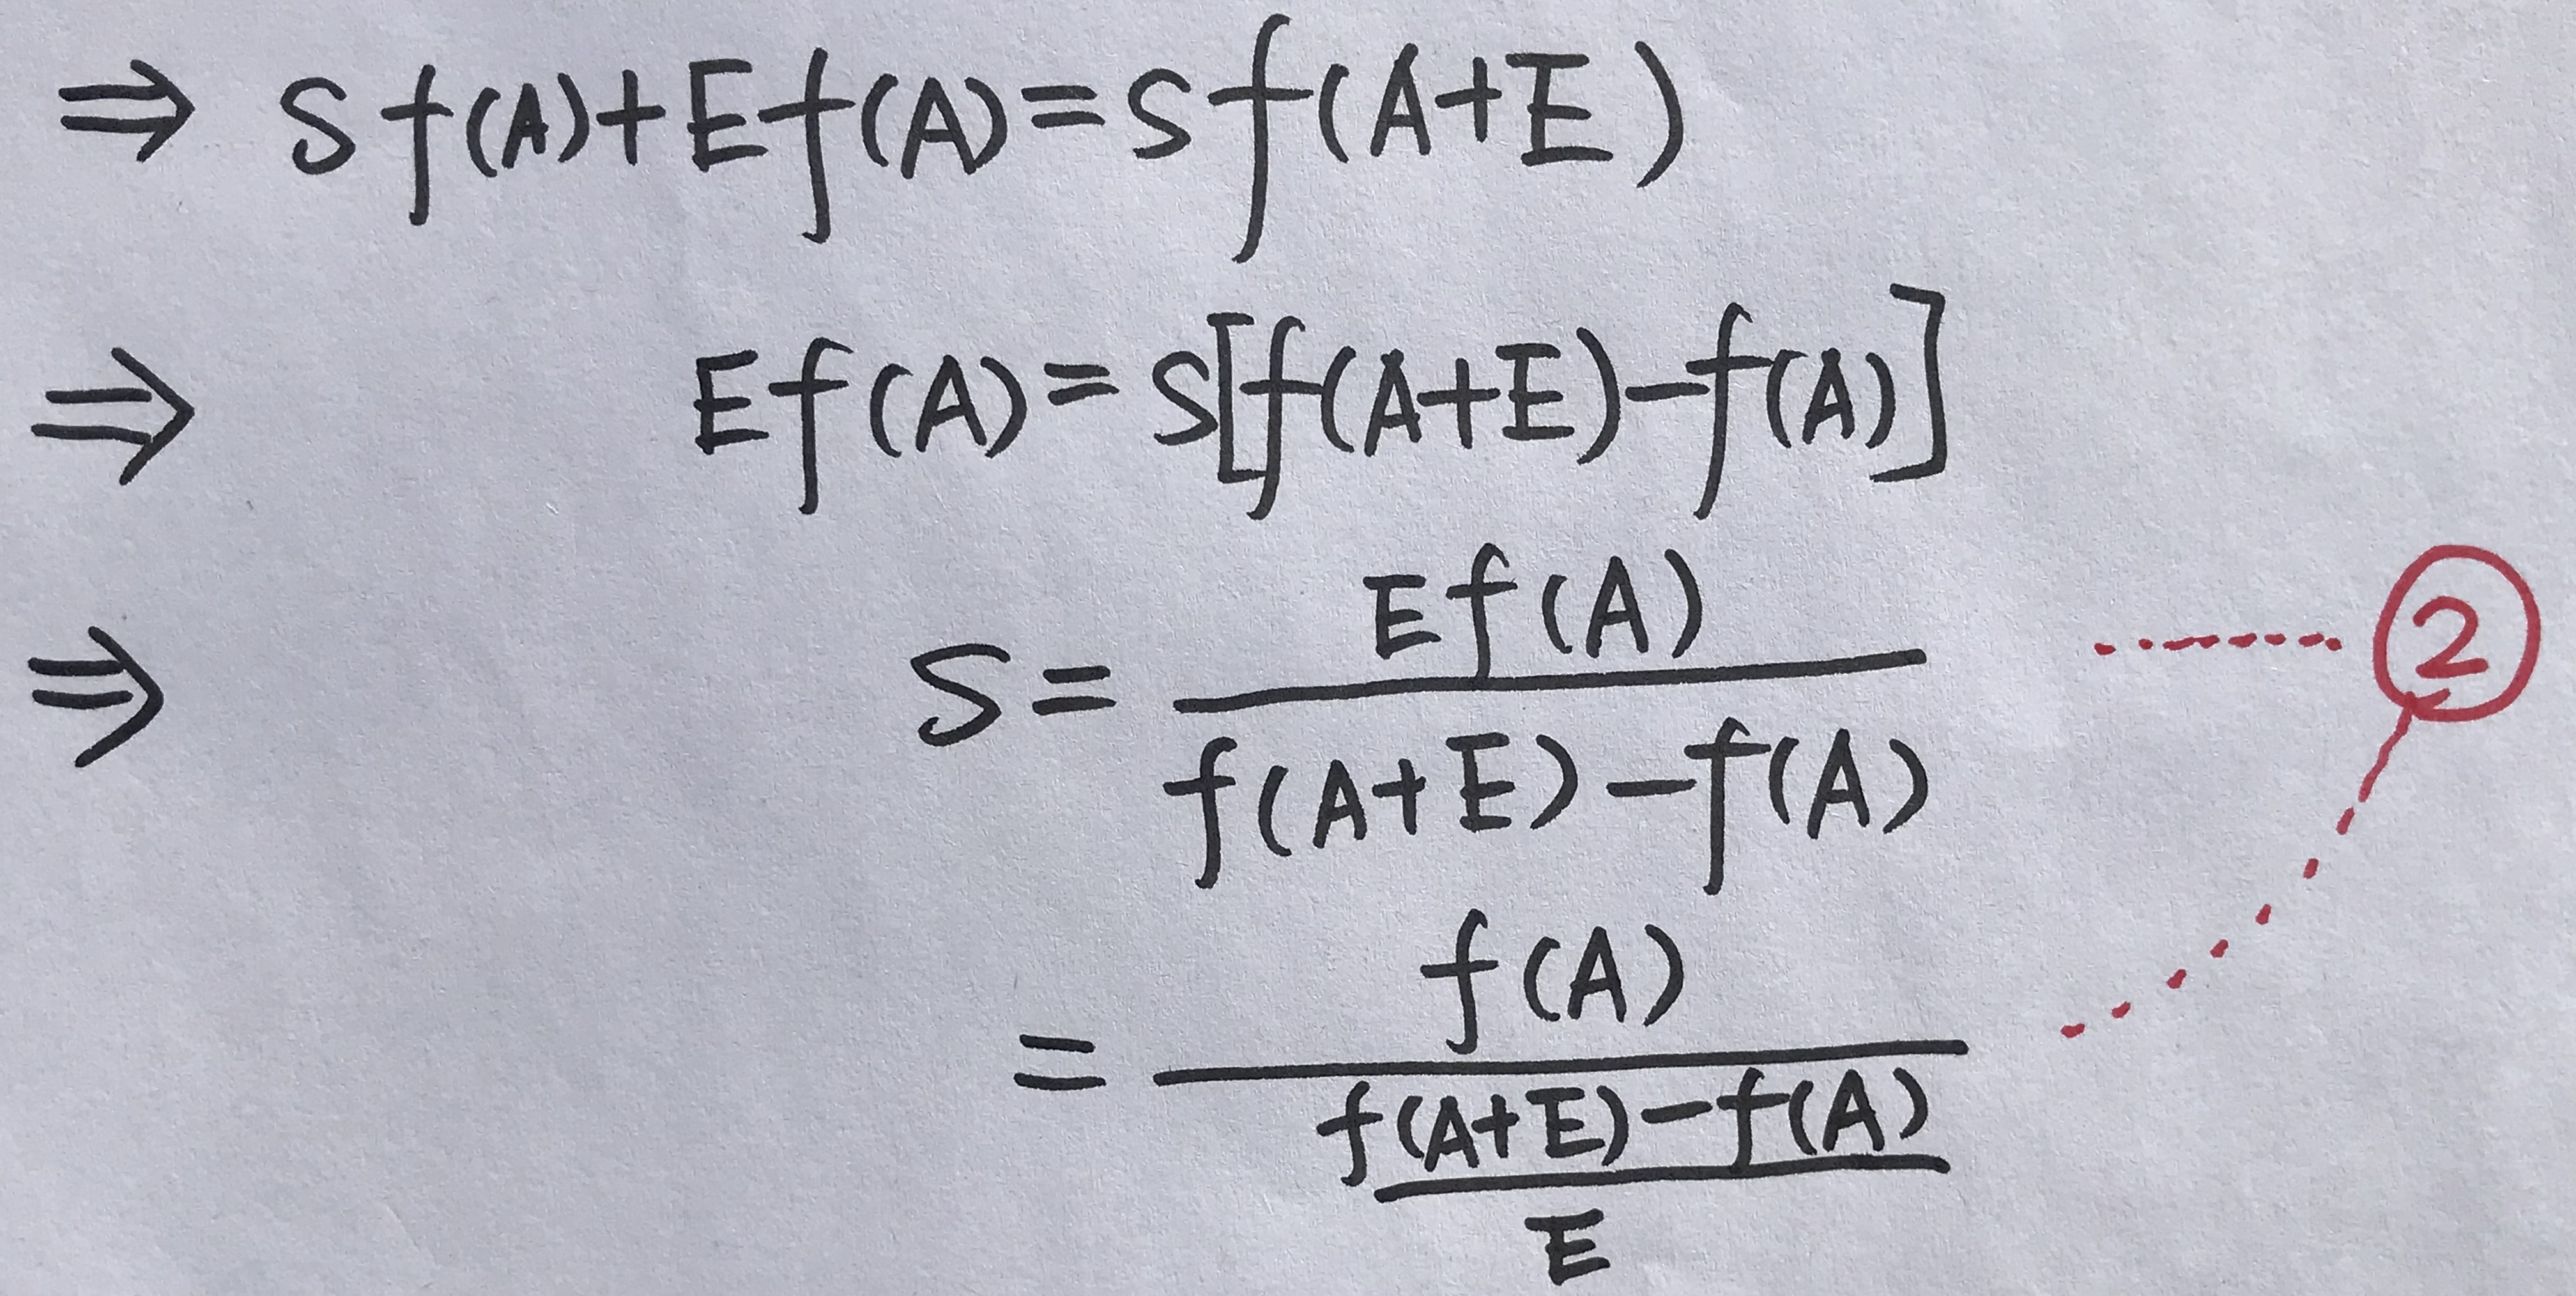 ⇒ S f(A)+E f(A)=S f(A+E)
⇒ E f(A)=S[f(A+E)-f(A)]
⇒ S = \frac{E f(A)}{f(A+E)-f(A)} ------- ②
= \frac{f(A)}{\frac{f(A+E)-f(A)}{E}}